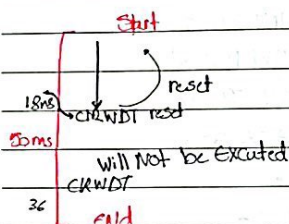 Start
reset
18ms
CLRWDT reset
50ms
Will Not be Excuted
CRWDT
36
END